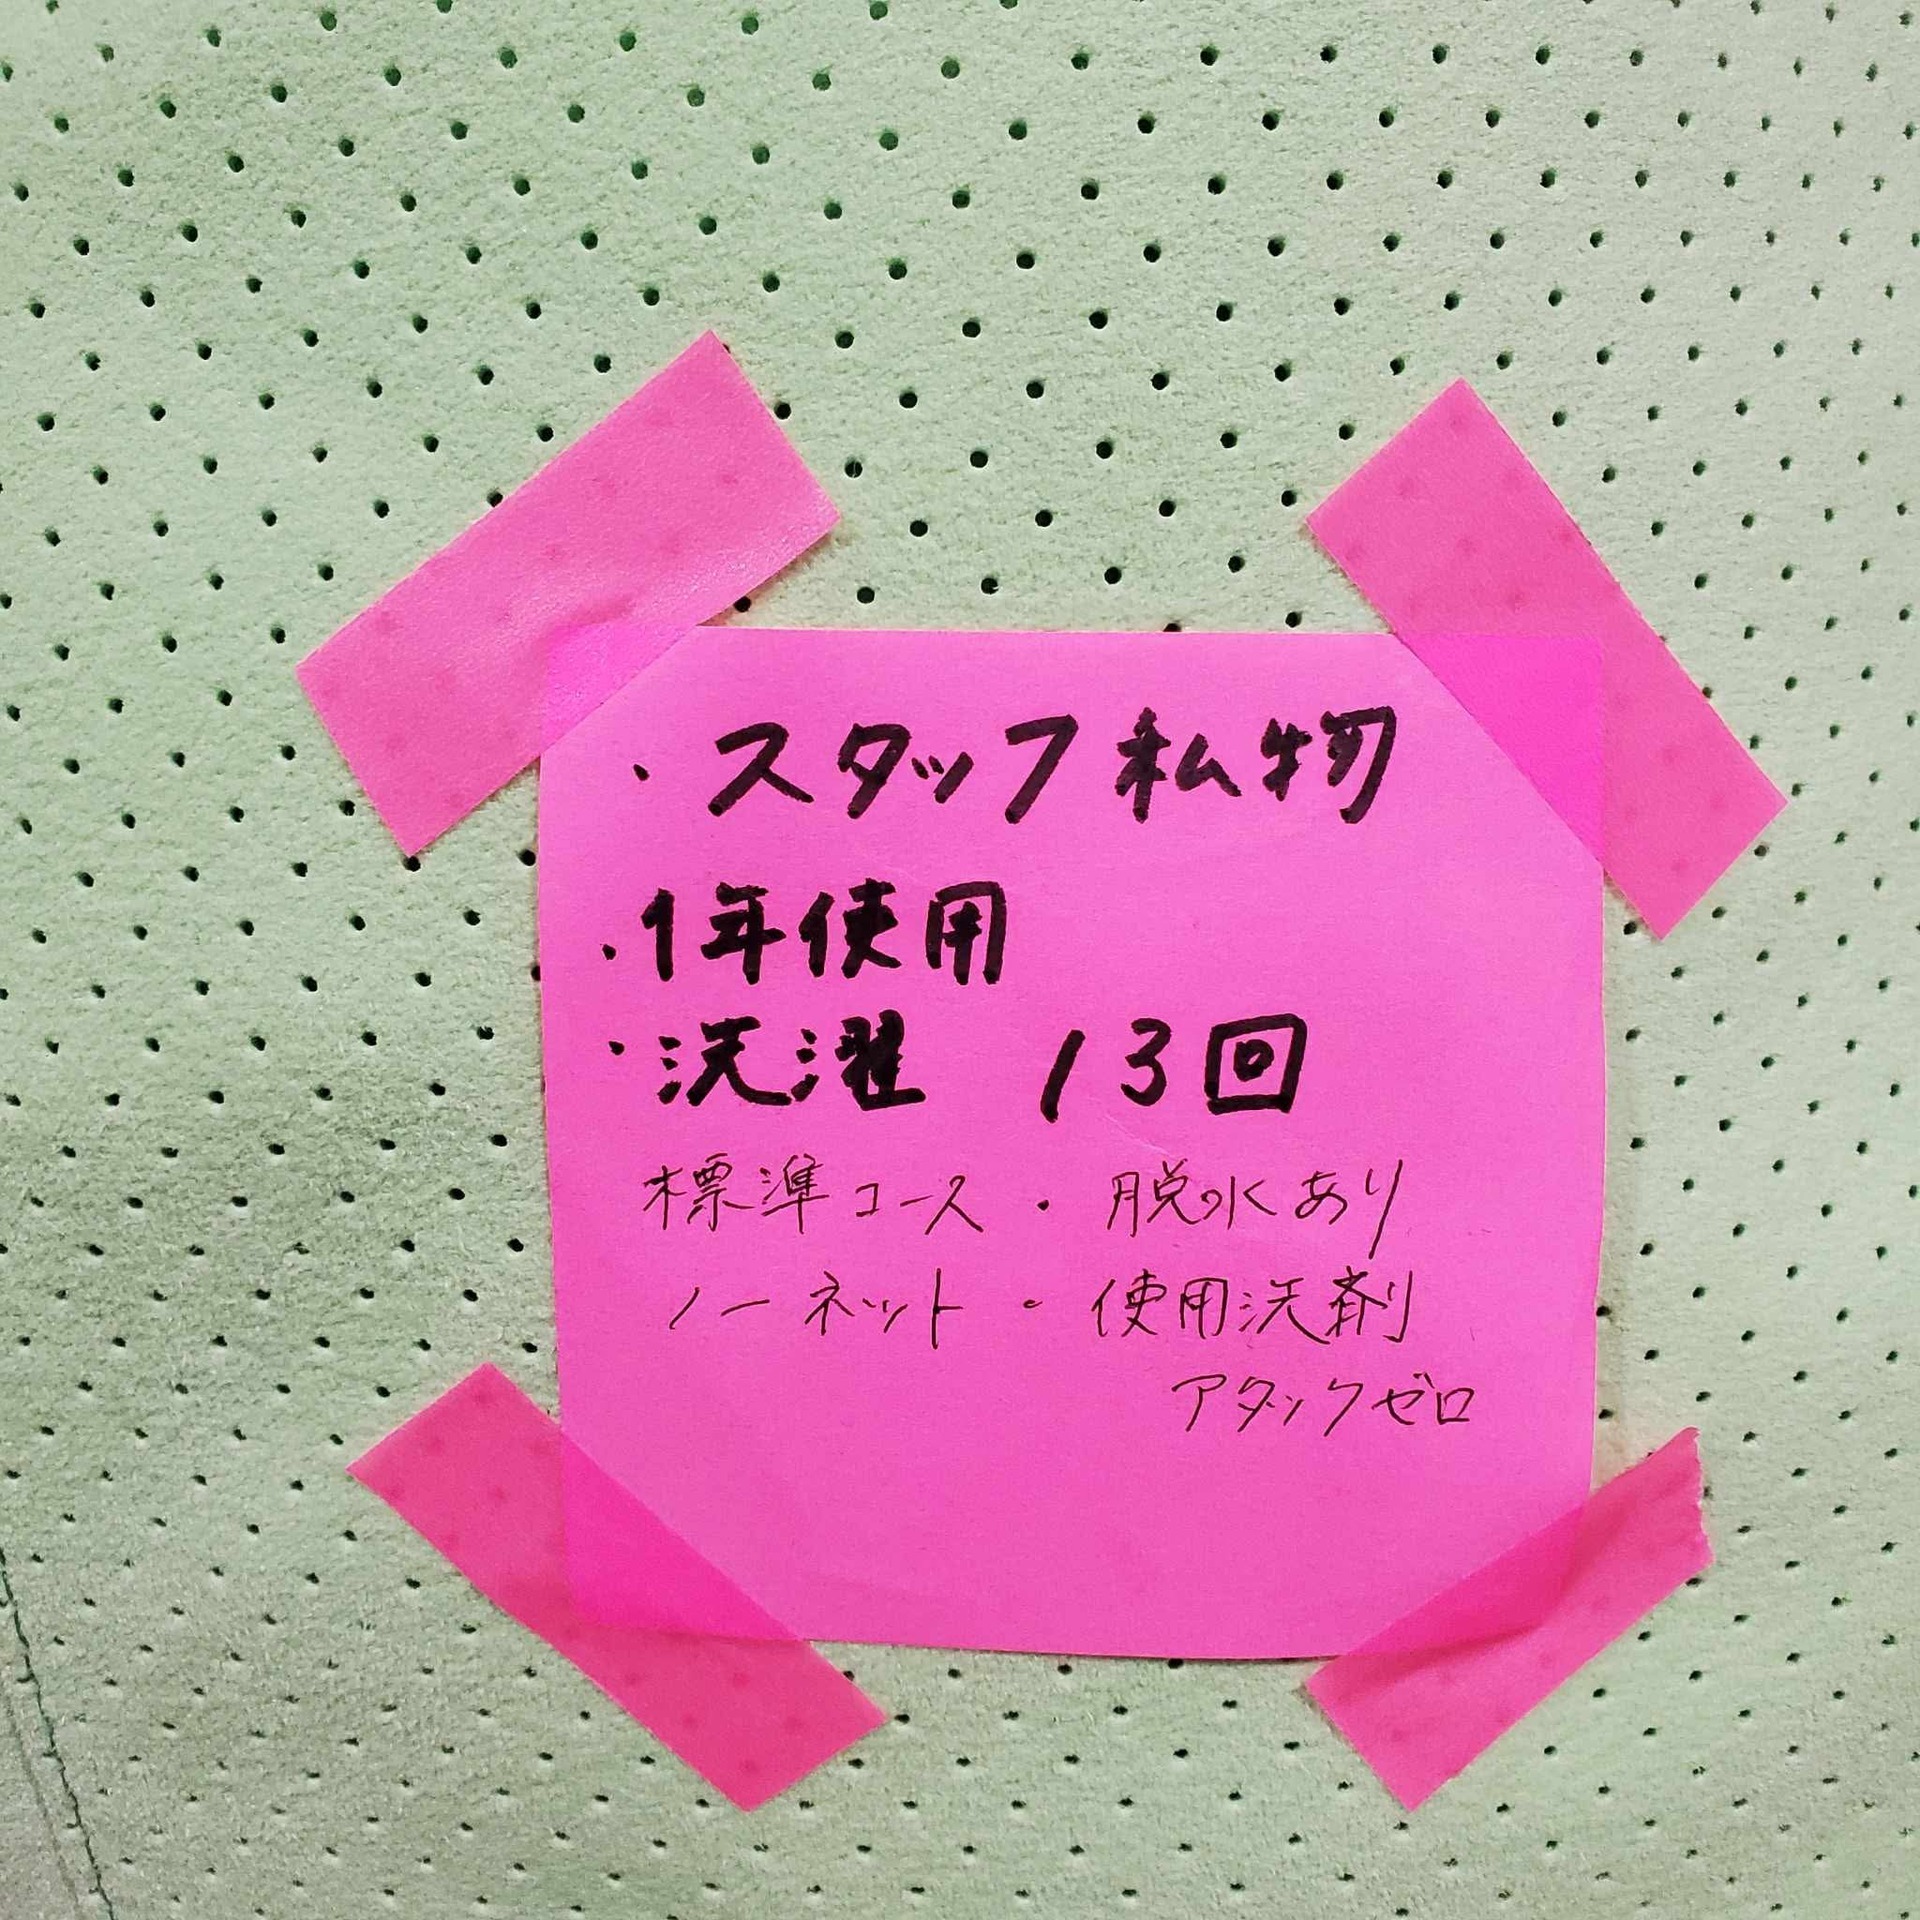 ・スタッフ私物
・1年使用
・洗濯 13回
標準コース・脱水あり
ノーネット・使用洗剤
アタックゼロ